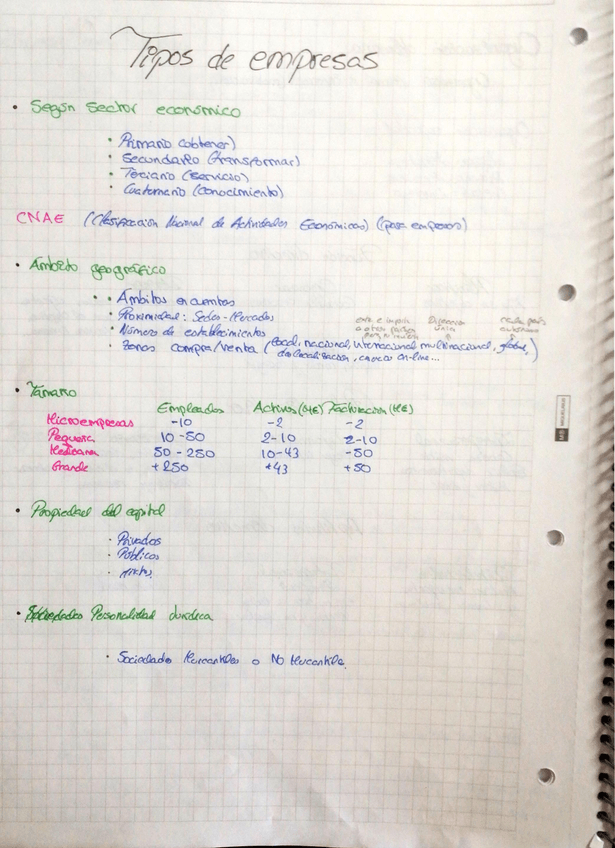 Tipos de empresas
• Según Sector económico
• Primario (obtener)
• Secundario (transformar)
• Terciario (servicio)
• Cuaternario (conocimiento)
CNAE (Clasificación Nacional de Actividades Económicas) (para empresas)
• Ámbito geográfico
• • Ámbitos en cuentas
• Proximidad: Sedes - Mercados
• Número de establecimientos
• Zonas compra/venta (local, nacional, internacional, multinacional, global,
deslocalización, on-line...)
• Tamaño
Empleados Activos (M€) Facturación (M€)
Microempresas -10 -2 -2
Pequeña 10-50 2-10 2-10
Mediana 50-250 10-43 -50
Grande +250 +43 +50
• Propiedad del capital
• Privados
• Públicos
• Mixtos
• Personalidad Jurídica
• Sociedades Mercantiles o No Mercantiles